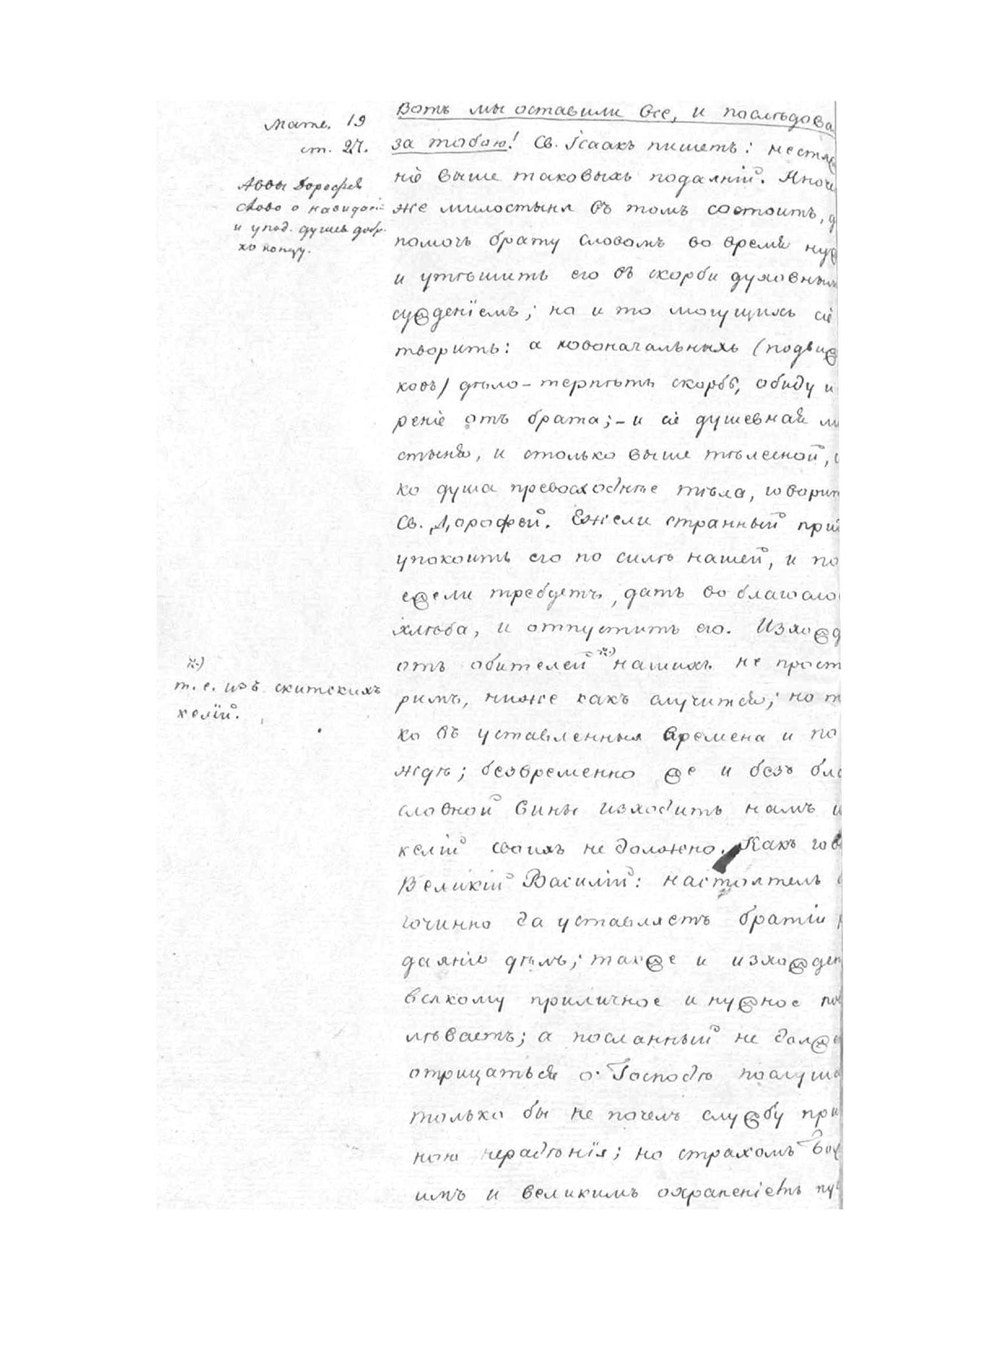 Матѳ. 19
ст. 27.
Аввы Дороѳея
слово о назидан:
и упод. душев. добр.
ко концу.
Вотъ мы оставили все, и послѣдова
за тобою! Св. Ісаакъ пишетъ: нестяж
ніе выше таковыхъ подаяній. Иноче
же милостыня въ томъ состоитъ,
помочь брату словомъ во время нуж
и утѣшить его въ скорби духовным
сужденіемъ; но и то могущихъ сіе
творить: а новоначальныхъ (подвиж
ковъ) дѣло - терпѣть скорбь, обиду и
реніе отъ брата; - и сіе душевная ми
стыня, и столько выше тѣлесной,
ко душа превосходнѣе тѣла, говорит
Св. Дорофей. Ежели странный прій
упокоить его по силѣ нашей, и по
ежели требуетъ, дать во благосло
хлѣба, и отпустить его. Изхожд
отъ обителей *) нашихъ не прост
римъ, ниже какъ случится; но т
ко въ уставленныя времена и по
ждѣ; безвременно же и безъ бла
словной вины изходить намъ и
келій своихъ не должно. Какъ гов
Великій Василій: настоятель
гочинно да уставляетъ братіи
даяніе дѣлъ; также и изхожден
всякому приличное и нужное пов
лѣваетъ; а посланный не долже
отрицаться о Господѣ послуша
только бы не почелъ службу при
ною нерадѣнія; но страхомъ Бож
имъ и великимъ охраненіемъ пу
*)
т. е. изъ скитскихъ
келій.